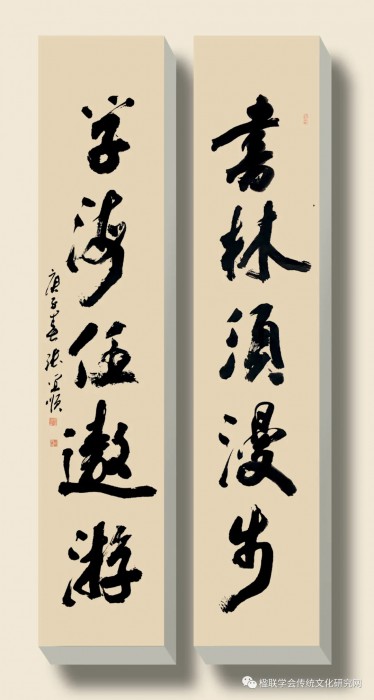 書林須漫步
学海任遨游
庚子春张宜顺
楹联学会传统文化研究网